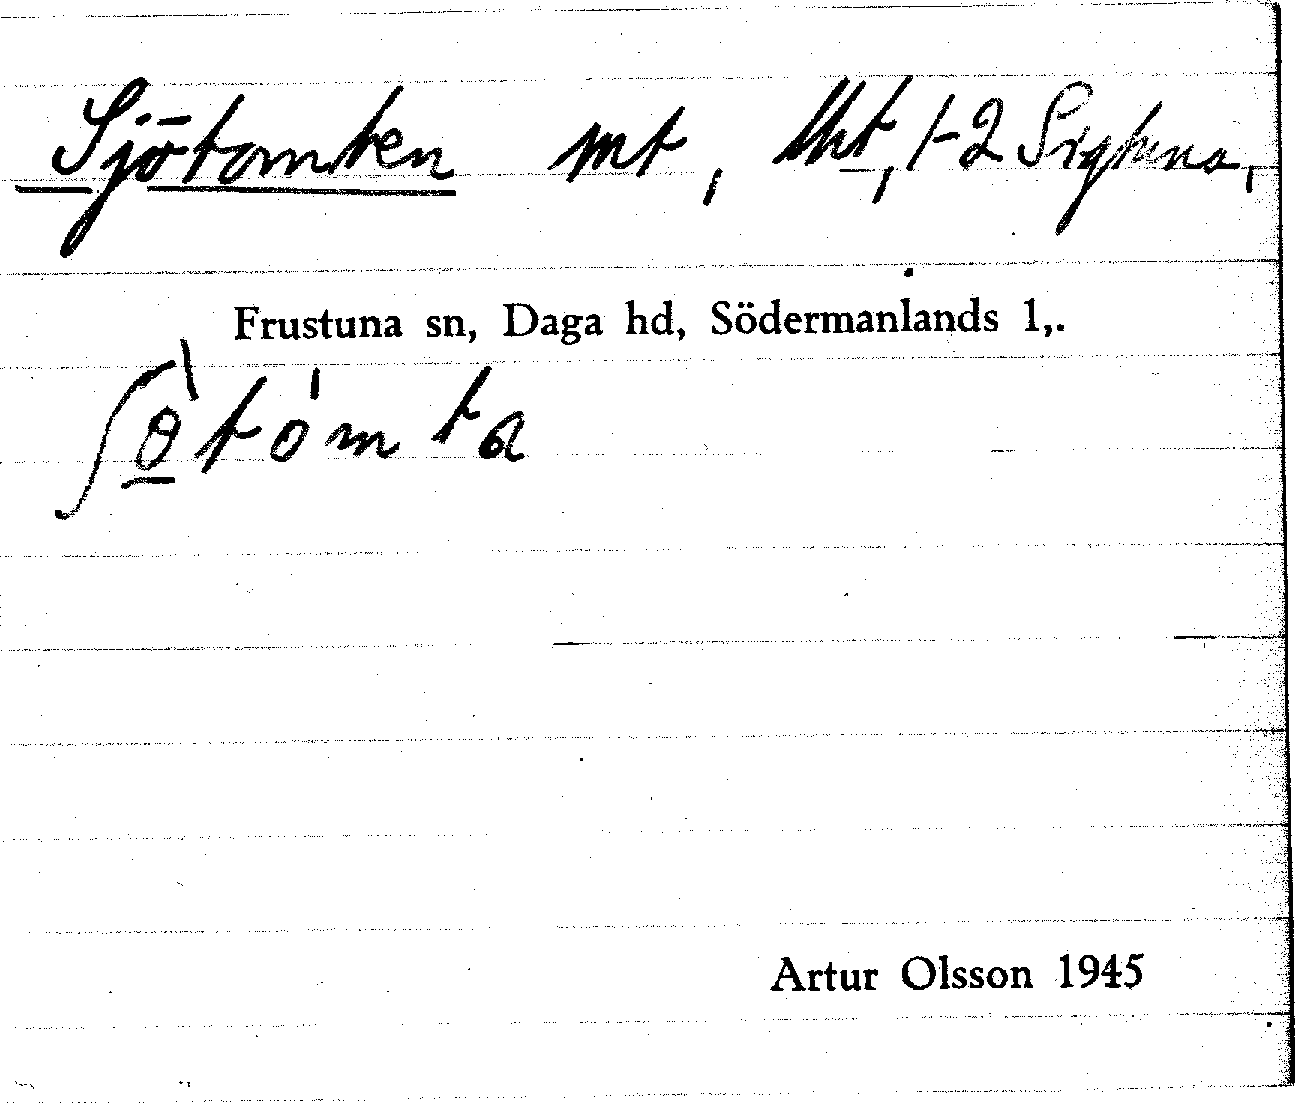 Sjötomten mt, lht, 1-2 Sigtuna,
Frustuna sn, Daga hd, Södermanlands l,.
ʃö̱̀tómta
Artur Olsson 1945